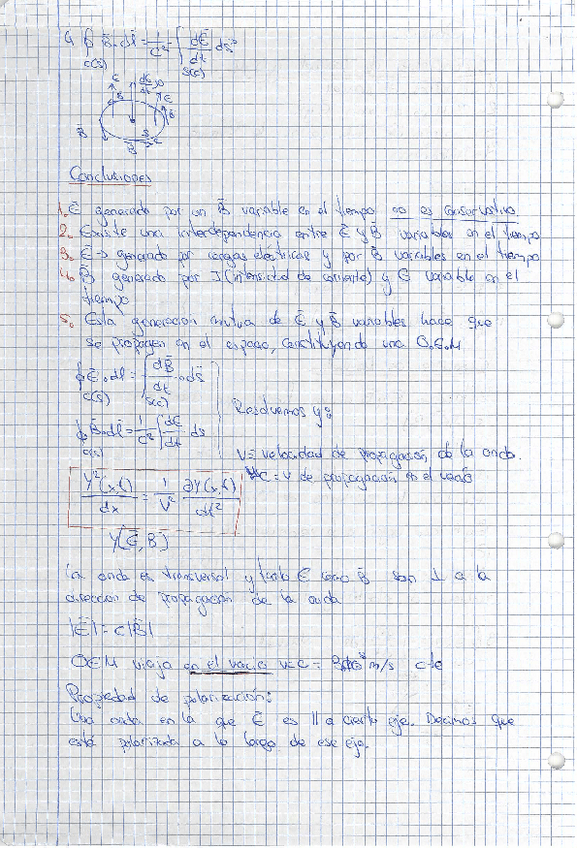 4 ∮ B̄·dl̄ = 1/C² ∫ dĒ/dt ds̄
C(S) S(c)
Conclusiones
1. Ē generado por un B̄ variable en el tiempo no es conservativo.
2. Existe una interdependencia entre Ē y B̄ variables en el tiempo
3. Ē → generado por cargas eléctricas y por B̄ variables en el tiempo
4. B̄ generado por I (intensidad de corriente) y Ē variable en el
tiempo
5. Esta generacion mutua de Ē y B̄ variables hace que
se propagen en el espacio, constituyendo una O.E.M
∮ Ē·dl̄ = ∫ dB̄/dt · ds̄
C(S) S(c)
Resolvemos y:
∮ B̄·dl̄ = 1/C² ∫ dĒ/dt · ds
C(s)
V = velocidad de propagación de la onda.
C = V de propagación en el vacío
Y²(x,t)/dx = 1/V² ∂Y(x,t)/dt²
Y(Ē, B̄)
La onda es transversal y tanto Ē como B̄ son ⊥ a la
direccion de propagación de la onda
|Ē| = c|B̄|
OEM viaja en el vacio v=c = 3·10⁸ m/s cte
Propiedad de polarización:
Una onda en la que Ē es || a cierto eje. Decimos que
está polarizada a lo largo de ese eje.